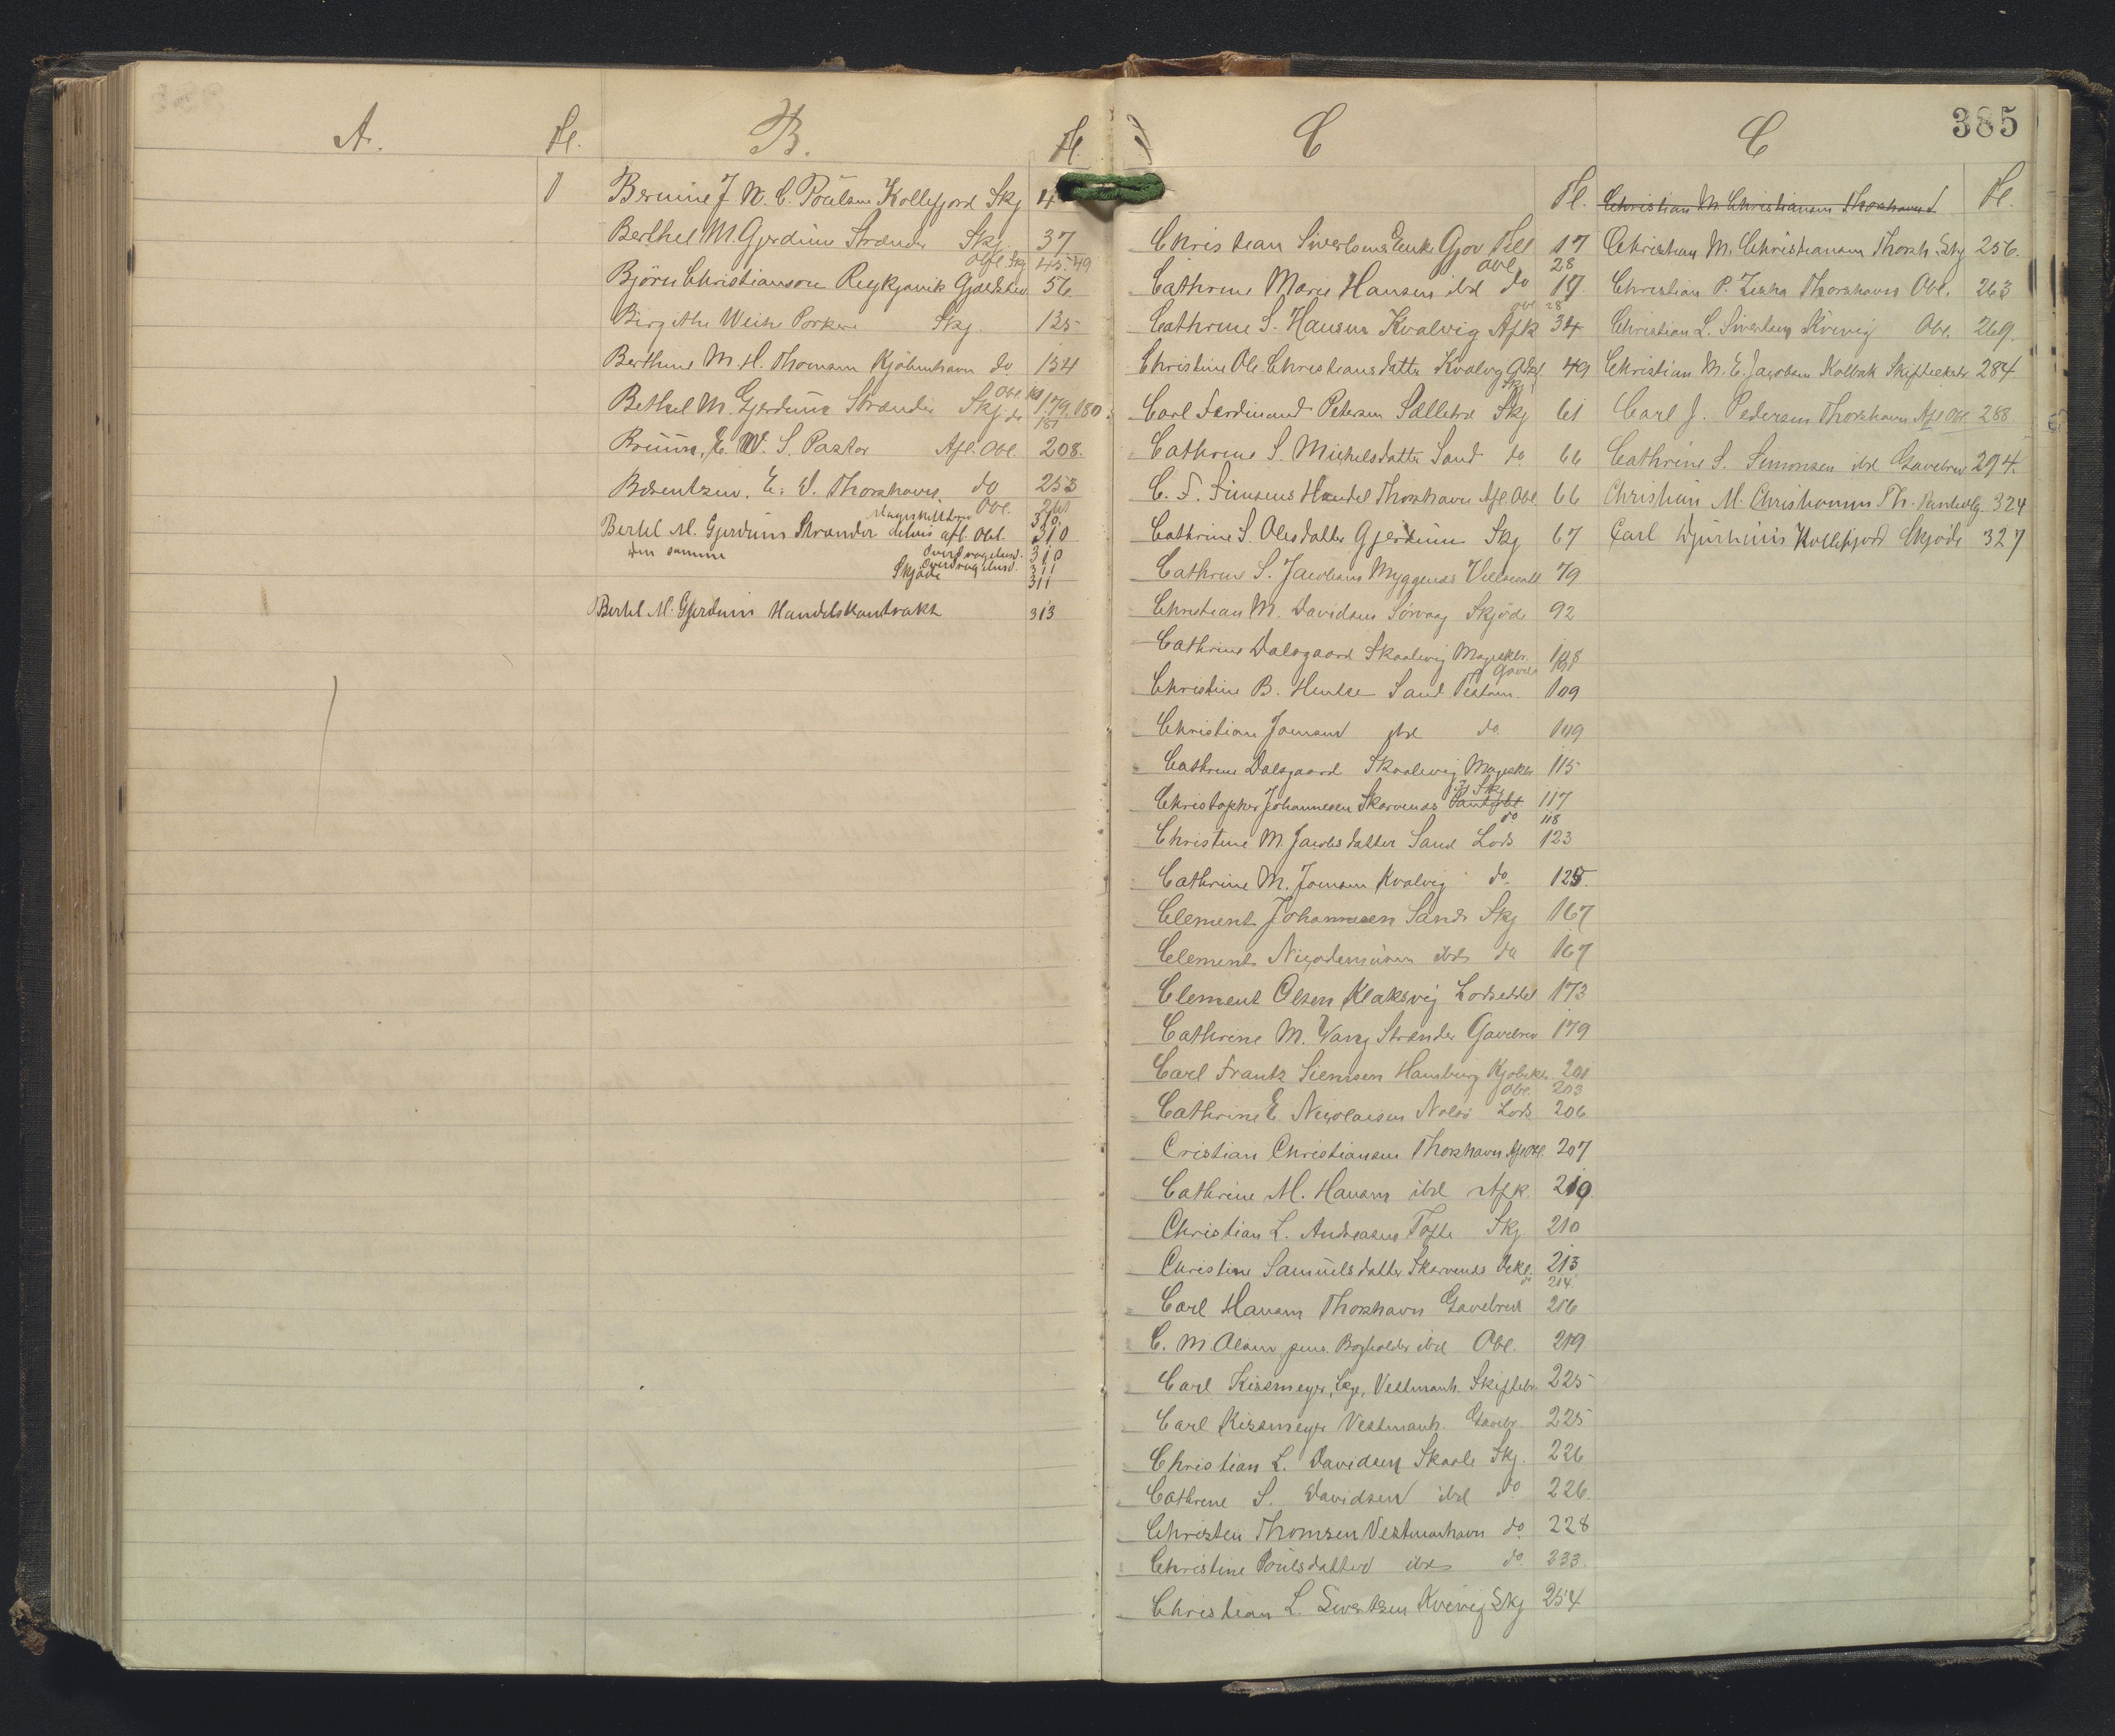 A.
Fl.
B.
Fl.
Bernine J. M. C. Poülsen Kollefjord Skj 4
Berthel M. Gjerdüm Strænder Skj. 37
Obl. Skj 45.49
Björn Christiansen Reykjavik Gjældsbrev 56
Birgithe Weihe Porkere Skj. 135
Berthine M. H. Thomsen Kjöbenhavn do 154
Bethel M. Gjerdüm Strænder Skj. 179.180
do 181
Brüün, E. W. S. Pastor Afl. Obl. 208.
Berentzen, E. V. Thorshavn do 253
Obl. 261
310.
Bertel M. Gjerdüm Strænder delvis afl. Obl. 310
den samme Overdragelsesd. 310
Overdragelsesd. 311
Skjøde 311
Bertel M. Gjerdüm Handelskontrakt 313
C
385
Fl.
Christian Sivertsens Enke Gov 17
Obl. 28
Cathrine Marie Hansen ibd do 17
Obl. 28
Cathrine S. Hansen Kvalvig Afk 34
Christine Ole Christiansdatter Kvalvig 49
Skj.
Carl Ferdinand Petersen Selletræ Skj 61
Cathrine S. Michelsdatter Sand do 66
C. F. Siemsens Handel Thorshavn Afl. Obl. 66
Cathrine S. Olesdatter Gjerdüm Skj 67
Cathrine S. Jacobsen Myggenæs 79
Christian M. Davidsen Sørvaag Skjøde 92
Cathrine Dalsgaard Skaalevig Mageskr. 108
Christine B. Hentze Sand Testam. 109
Christian Joensen ibd do 109
Cathrine Dalsgaard Skaalevig Mageskr 115
Skj.
Christopher Johannesen Skarvenæs Pantobl 117
do 118
Christine M. Jacobsdatter Sand Lods 123
Cathrine M. Joensen Kvalvig do. 125.
Clement Johannesen Sand Skj 167
Clement Nicodemüsen ibd do 167
Clement Olsen Klaksvig Lodseddel 173
Cathrine M. Wang Strænder Gavebrev 179
Carl Frantz Siemsen Hamburg Kjøbekr. 201
Obl. 203
Cathrine E. Nicolaisen Nolsö Lods 206
Cristian Christiansen Thorshavn Afl Obl. 207
Cathrine M. Hansen ibd Afk. 210
Christian L. Andreasen Tofte Skj. 210
Christine Samüelsdatter Skarvenæs 213
do 214
Carl Hansen Thorshavn Gavebrev 216
C. M. Olsen, pens. Bogholder ibd Obl. 219
Carl Kissmeyer, Læge, Vestmanh. Skiftebr. 225
Carl Kissmeyer Vestmanh. Gavebr. 225
Christian L. Davidsen Skaale Skj. 226
Cathrine S. Davidsen ibd do 226.
Christen Thomsen Vestmanhavn do 228
Christine Poülsdatter ibd do. 233.
Christian L. Sivertsen Kvivig Skj 254
C
Fl.
Christian M. Christiansen Thorshavn
Christian M. Christiansen Thorsh. Skj 256.
Christian P. Zeska Thorshavn Obl. 263
Christian L. Sivertsen Kvivig Obl. 269.
Christian M. E. Jacobsen Kolbak Skifteekstr. 284
Carl J. Pedersen Thorshavn Afl Obl. 288
Cathrine S. Simonsen ibd Gavebrev 294.
Christian M. Christiansen Th. 324
Carl Djurhüüs Kollefjord Skjöde 327